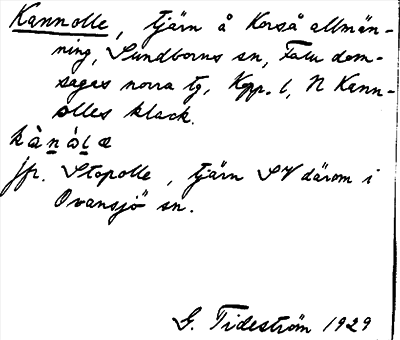 Kannolle, tjärn å Korså allmän-
ning, Sundborns sn, Falu dom-
sagas norra tg, Kopp. l, N Kann-
olles klack.
kànálæ
jfr. Stopolle, tjärn SV därom i
Ovansjö sn.
G. Tideström 1929